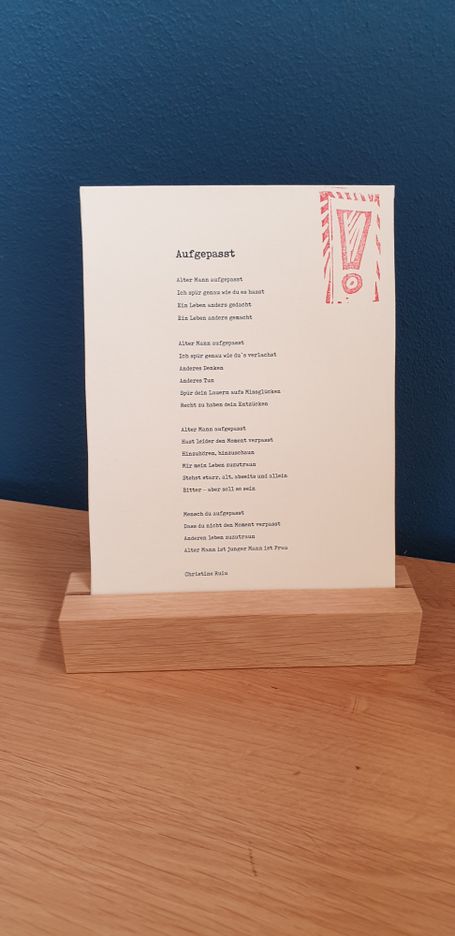 Aufgepasst
Alter Mann aufgepasst
Ich spür genau wie du es hasst
Ein Leben anders gedacht
Ein Leben anders gemacht
Alter Mann aufgepasst
Ich spür genau wie du's verlachst
Anderes Denken
Anderes Tun
Spür dein Lauern aufs Missglücken
Recht zu haben dein Entzücken
Alter Mann aufgepasst
Hast leider den Moment verpasst
Hinzuhören, hinzuschaun
Mir mein Leben zuzutraun
Stehst starr, alt, abseits und allein
Bitter - aber soll so sein
Mensch du aufgepasst
Dass du nicht den Moment verpasst
Anderen Leben zuzutraun
Alter Mann ist junger Mann ist Frau
Christine